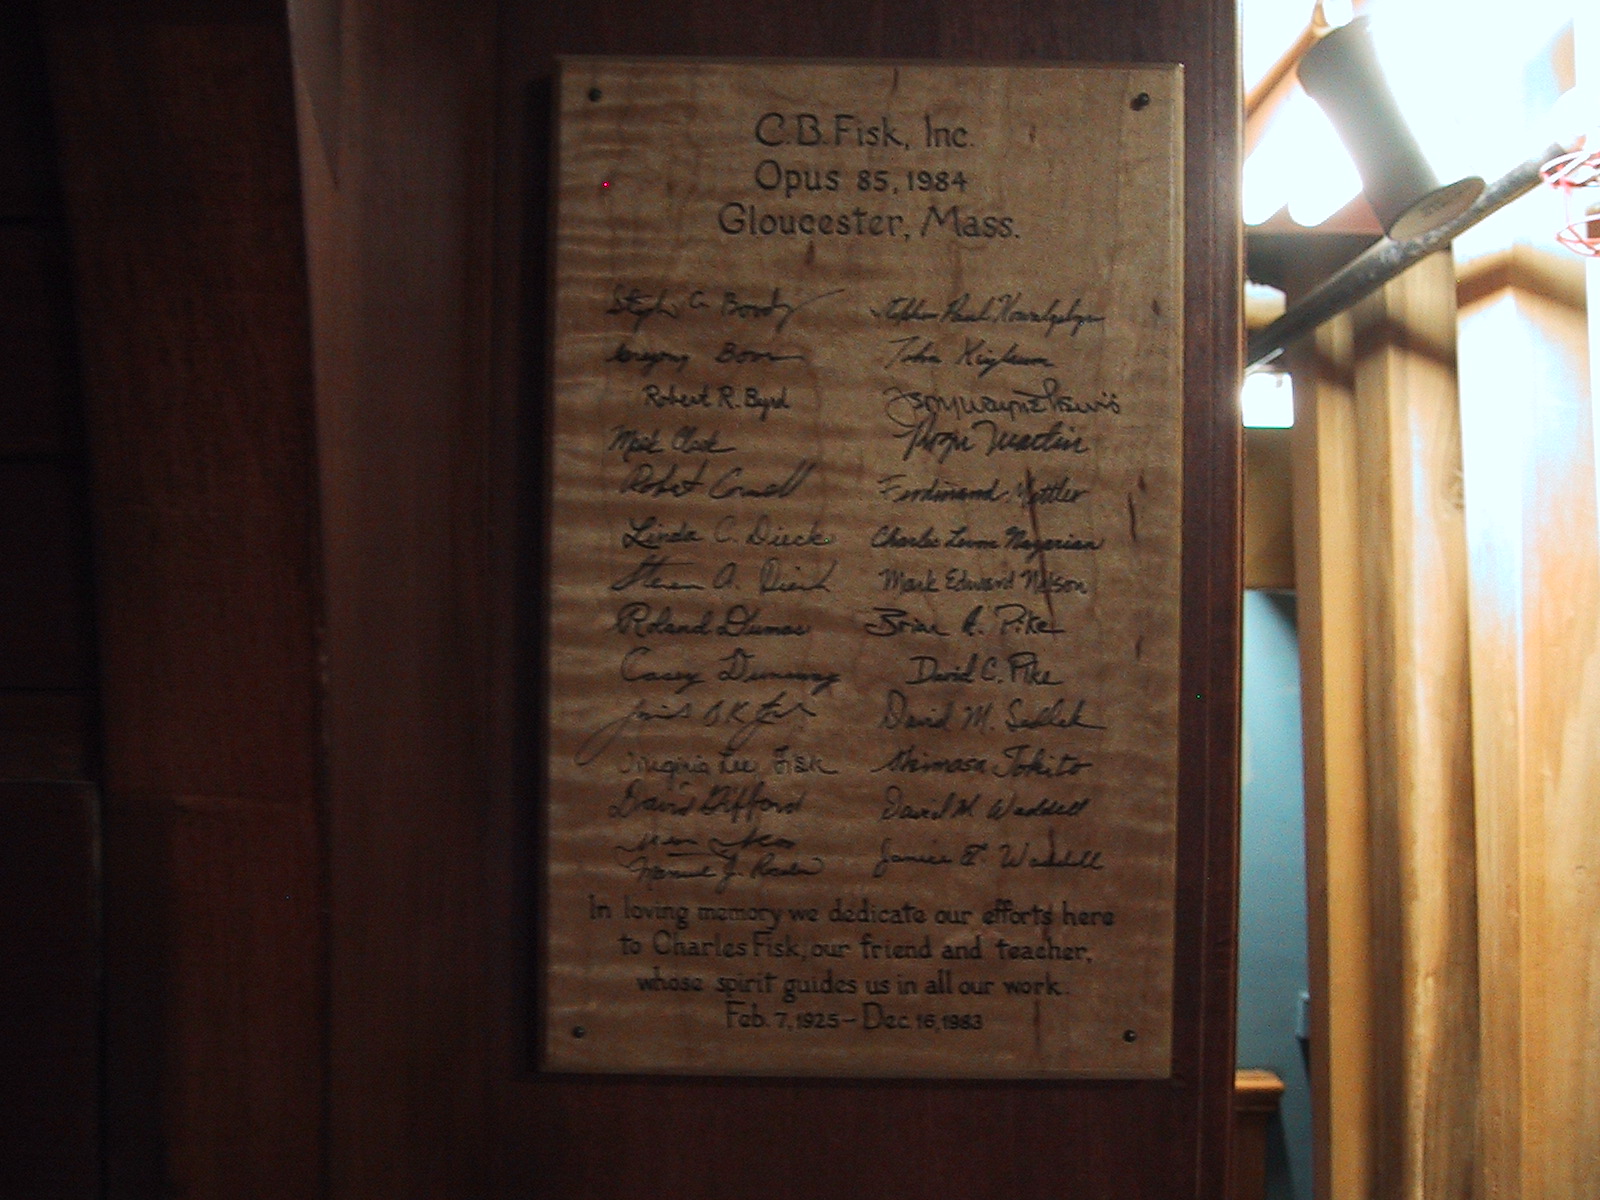 C.B. Fisk, Inc.
Opus 85, 1984
Gloucester, Mass.
Steph G. Boody
Gregory Bover
Robert R. Byrd
Mark Clark
Robert Cornell
Linda C. Dieck
Steven A. Dieck
Roland Dumas
Casey Dunaway
Virginia Lee Fisk
David Gifford
Manuel J. Rosales
Stephen Paul Kowalyshyn
John
Jerry Wayne Lewis
Roger Martin
Ferdinand Mettler
Charles Nazarian
Mark Edward Nelson
Brian A. Pike
David C. Pike
David M. Sedlak
Tokito
David M. Waddell
Janice E. Waddell
In loving memory we dedicate our efforts here
to Charles Fisk, our friend and teacher,
whose spirit guides us in all our work.
Feb. 7, 1925 – Dec. 16, 1983